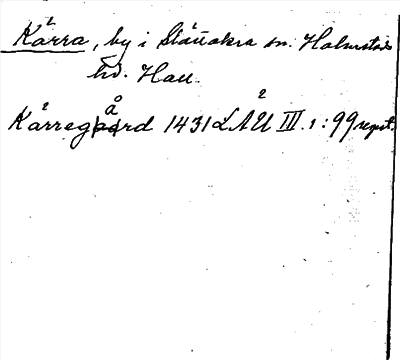 Kärra, by i Slättåkra sn. Halmstads
hd. Hall.
Kärregård 1431 LÄU III.1:99 regest.